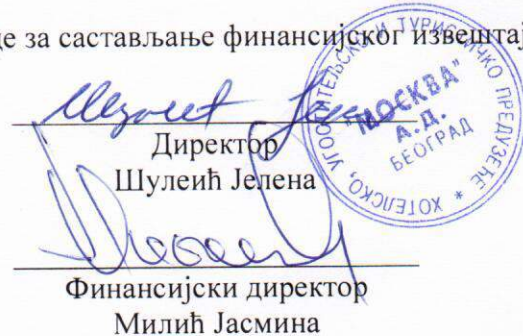 це за састављање финансијског извештај
Директор
Шулеић Јелена
Финансијски директор
Милић Јасмина
ХОТЕЛСКО, УГОСТИТЕЉСКО И ТУРИСТИЧКО ПРЕДУЗЕЋЕ *
"МОСКВА"
А.Д.
БЕОГРАД